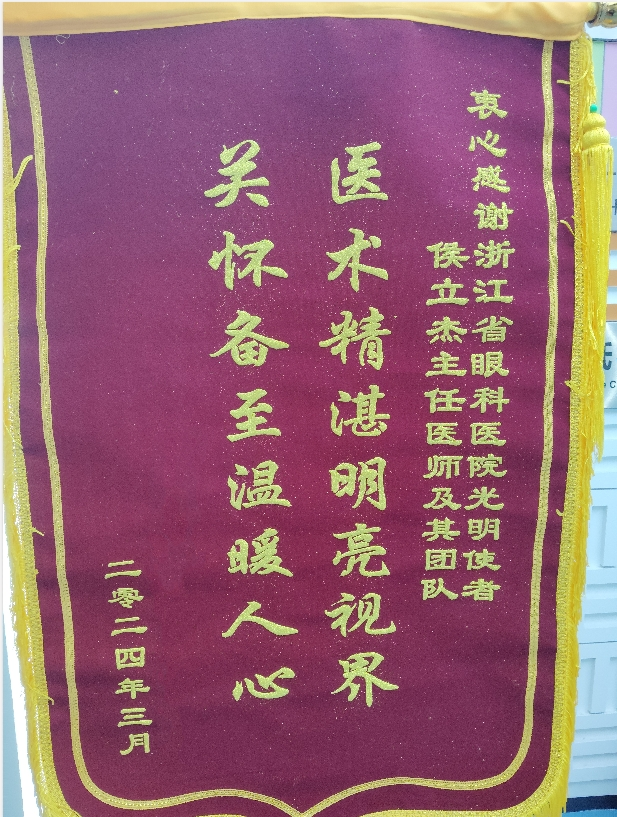 衷心感谢浙江省眼科医院光明使者
侯立杰主任医师及其团队
医术精湛明亮视界
关怀备至温暖人心
二零二四年三月